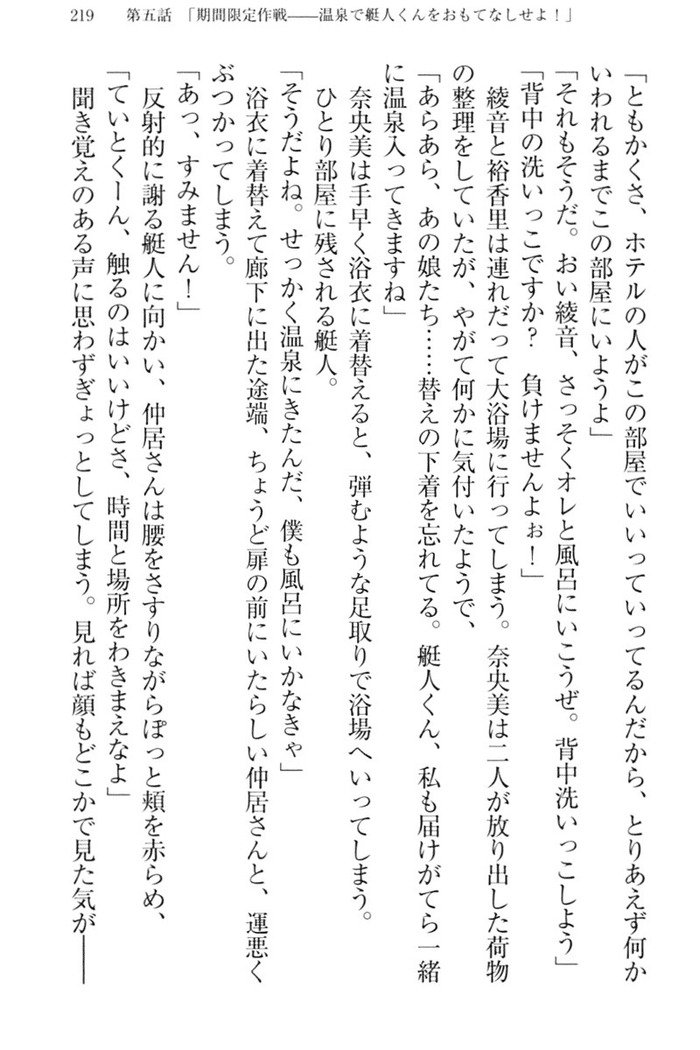 219　第五話　「期間限定作戦――温泉で艇人くんをおもてなしせよ！」
「ともかくさ、ホテルの人がこの部屋でいいっていってるんだから、とりあえず何か
いわれるまでこの部屋にいようよ」
「それもそうだ。おい綾音、さっそくオレと風呂にいこうぜ。背中洗いっこしよう」
「背中の洗いっこですか？　負けませんよぉ！」
　綾音と裕香里は連れだって大浴場に行ってしまう。奈央美は二人が放り出した荷物
の整理をしていたが、やがて何かに気付いたようで、
「あらあら、あの娘たち……替えの下着を忘れてる。艇人くん、私も届けがてら一緒
に温泉入ってきますね」
　奈央美は手早く浴衣に着替えると、弾むような足取りで浴場へいってしまう。
　ひとり部屋に残される艇人。
「そうだよね。せっかく温泉にきたんだ、僕も風呂にいかなきゃ」
　浴衣に着替えて廊下に出た途端、ちょうど扉の前にいたらしい仲居さんと、運悪く
ぶつかってしまう。
「あっ、すみません！」
　反射的に謝る艇人に向かい、仲居さんは腰をさすりながらぽっと頬を赤らめ、
「ていとくーん、触るのはいいけどさ、時間と場所をわきまえなよ」
　聞き覚えのある声に思わずぎょっとしてしまう。見れば顔もどこかで見た気が――